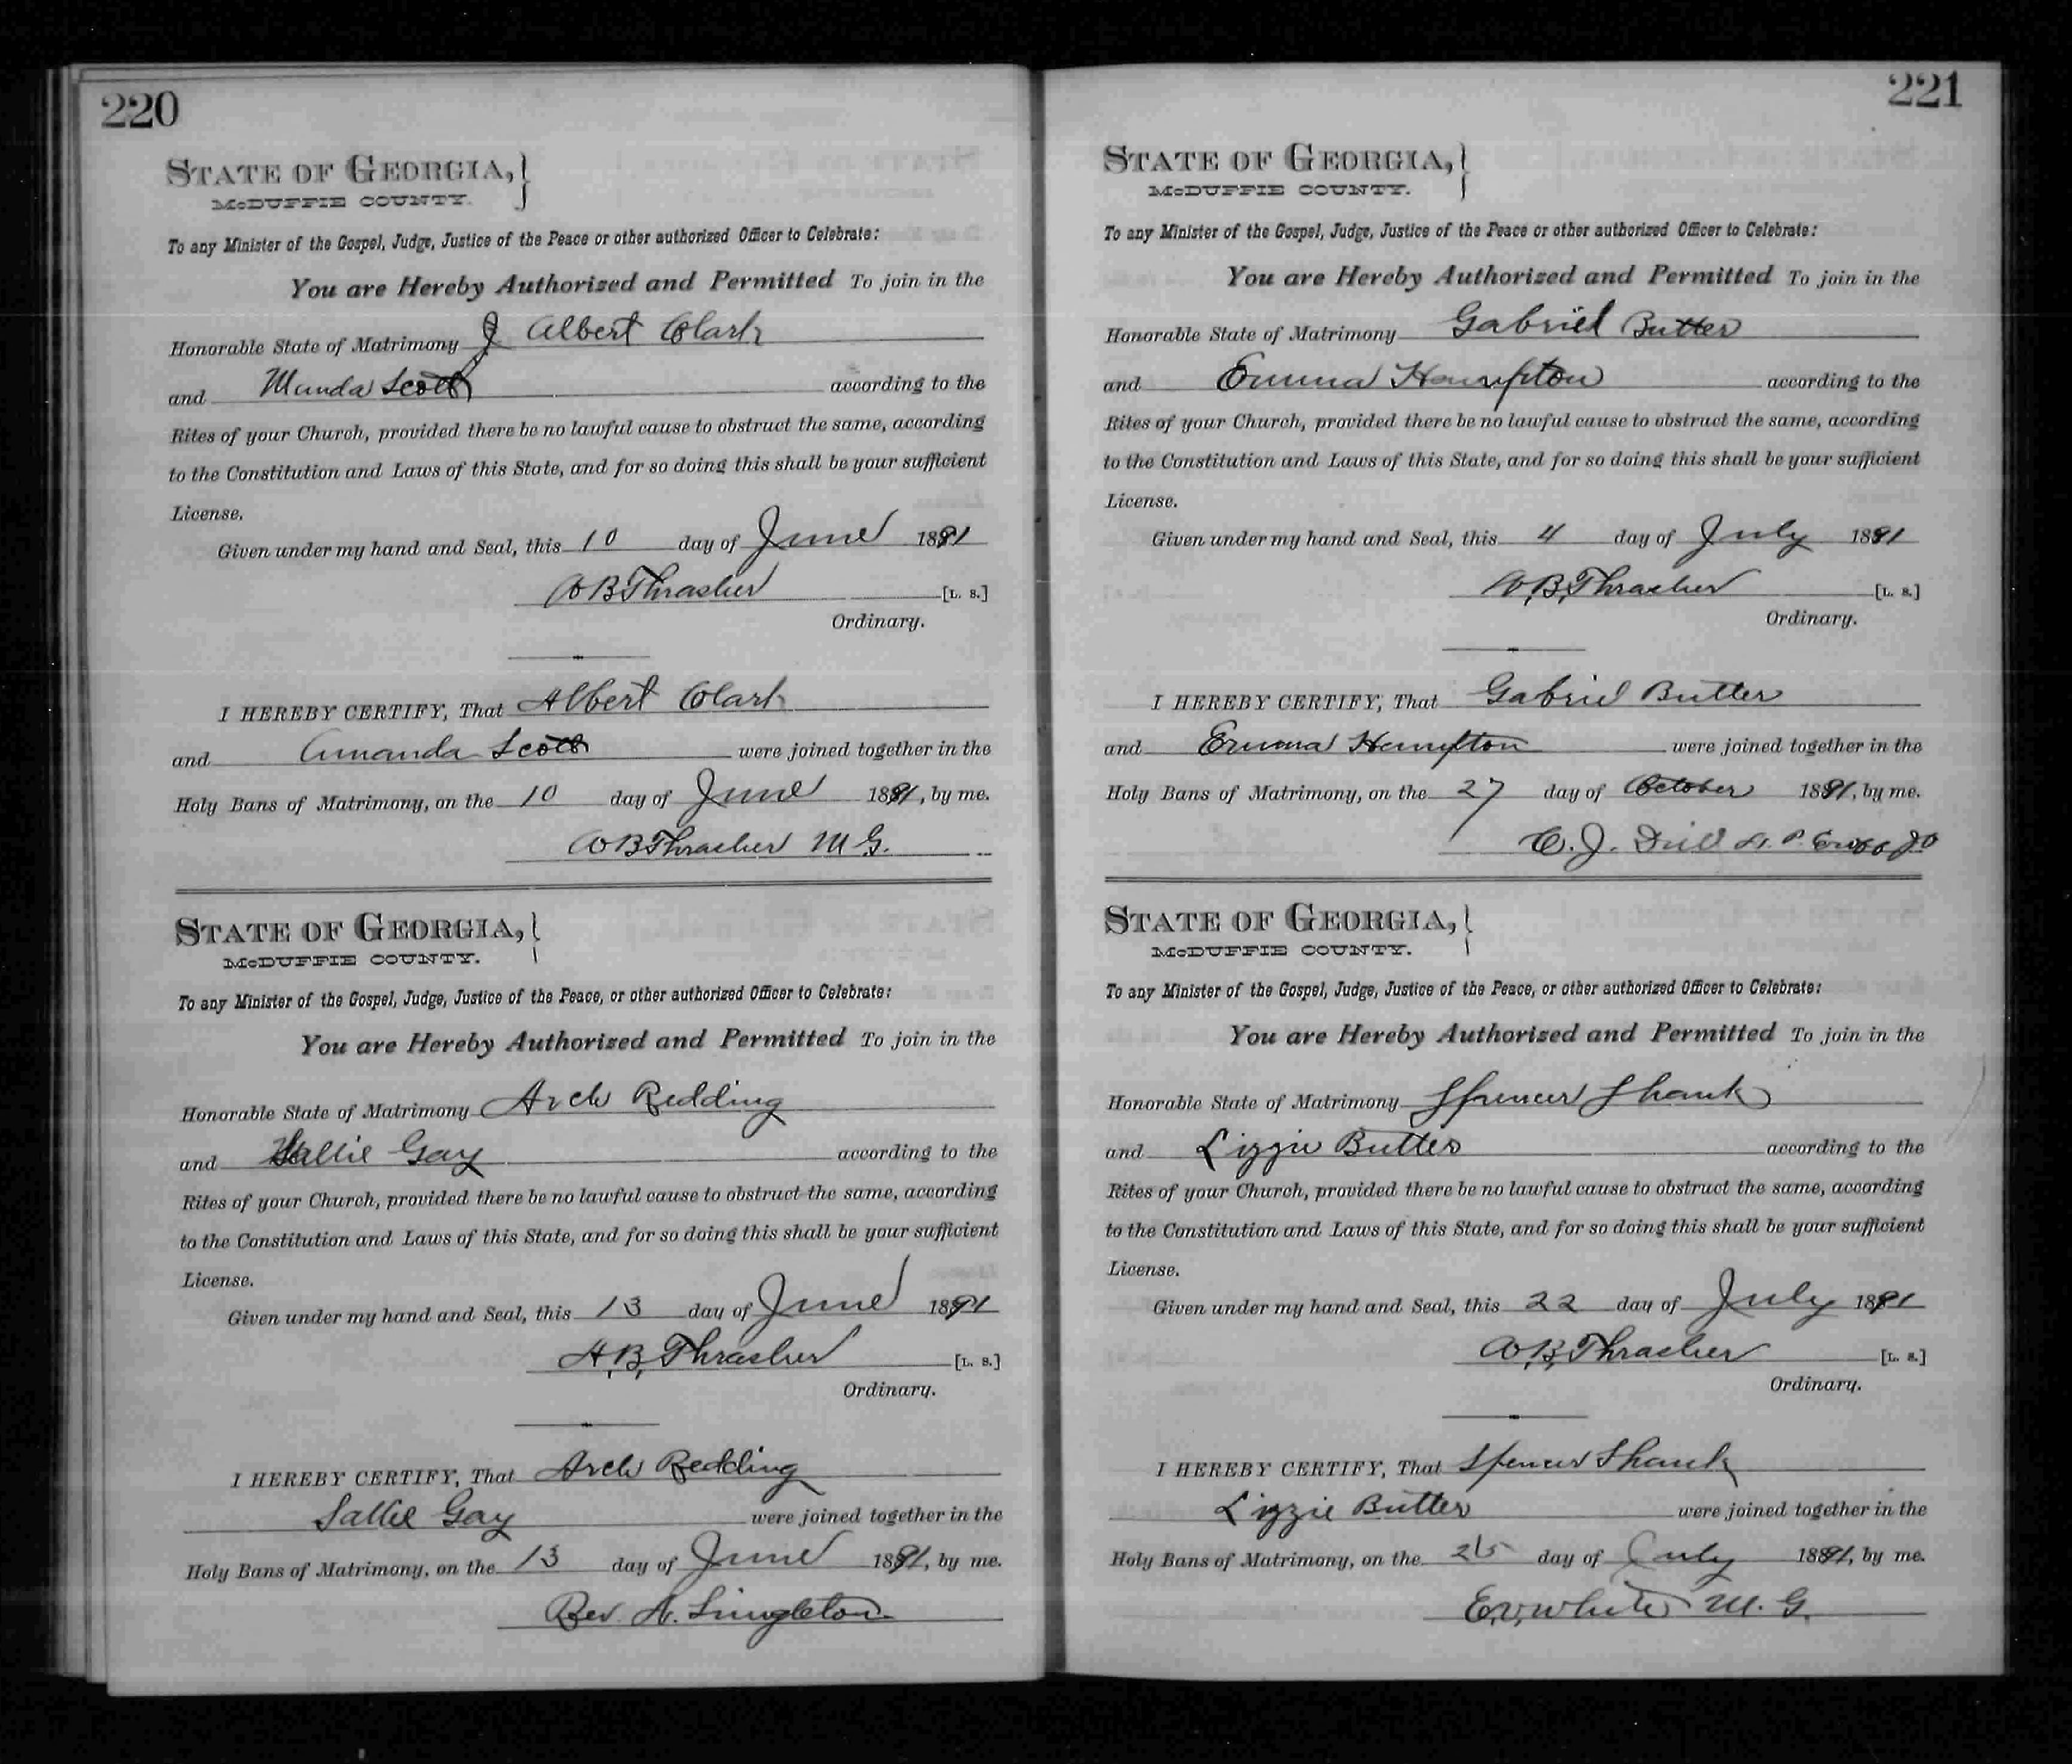 220
STATE OF GEORGIA,
McDUFFIE COUNTY.
To any Minister of the Gospel, Judge, Justice of the Peace or other authorized Officer to Celebrate:
You are Hereby Authorized and Permitted To join in the
Honorable State of Matrimony J Albert Clark
and Munda Scott according to the
Rites of your Church, provided there be no lawful cause to obstruct the same, according
to the Constitution and Laws of this State, and for so doing this shall be your sufficient
License.
Given under my hand and Seal, this 10 day of June 1891
A B Thrasher [L. S.]
Ordinary.
I HEREBY CERTIFY, That Albert Clark
and Amanda Scott were joined together in the
Holy Bans of Matrimony, on the 10 day of June 1891, by me.
A B Thrasher M G.
STATE OF GEORGIA,
McDUFFIE COUNTY.
To any Minister of the Gospel, Judge, Justice of the Peace, or other authorized Officer to Celebrate:
You are Hereby Authorized and Permitted To join in the
Honorable State of Matrimony Arch Redding
and Sallie Gay according to the
Rites of your Church, provided there be no lawful cause to obstruct the same, according
to the Constitution and Laws of this State, and for so doing this shall be your sufficient
License.
Given under my hand and Seal, this 13 day of June 1891
A.B. Thrasher [L. S.]
Ordinary.
I HEREBY CERTIFY, That Arch Redding
Sallie Gay were joined together in the
Holy Bans of Matrimony, on the 13 day of June 1891, by me.
Rev. A. Singleton
221
STATE OF GEORGIA,
McDUFFIE COUNTY.
To any Minister of the Gospel, Judge, Justice of the Peace or other authorized Officer to Celebrate:
You are Hereby Authorized and Permitted To join in the
Honorable State of Matrimony Gabriel Butter
and Emma Hampton according to the
Rites of your Church, provided there be no lawful cause to obstruct the same, according
to the Constitution and Laws of this State, and for so doing this shall be your sufficient
License.
Given under my hand and Seal, this 4 day of July 1891
A.B. Thrasher [L. S.]
Ordinary.
I HEREBY CERTIFY, That Gabriel Butter
and Emma Hampton were joined together in the
Holy Bans of Matrimony, on the 27 day of October 1891, by me.
C. J. Dill
STATE OF GEORGIA,
McDUFFIE COUNTY.
To any Minister of the Gospel, Judge, Justice of the Peace, or other authorized Officer to Celebrate:
You are Hereby Authorized and Permitted To join in the
Honorable State of Matrimony Spencer Shank
and Lizzie Butler according to the
Rites of your Church, provided there be no lawful cause to obstruct the same, according
to the Constitution and Laws of this State, and for so doing this shall be your sufficient
License.
Given under my hand and Seal, this 22 day of July 1891
A.B. Thrasher [L. S.]
Ordinary.
I HEREBY CERTIFY, That Spencer Shank
Lizzie Butler were joined together in the
Holy Bans of Matrimony, on the 25 day of July 1891, by me.
E.V. White M. G.